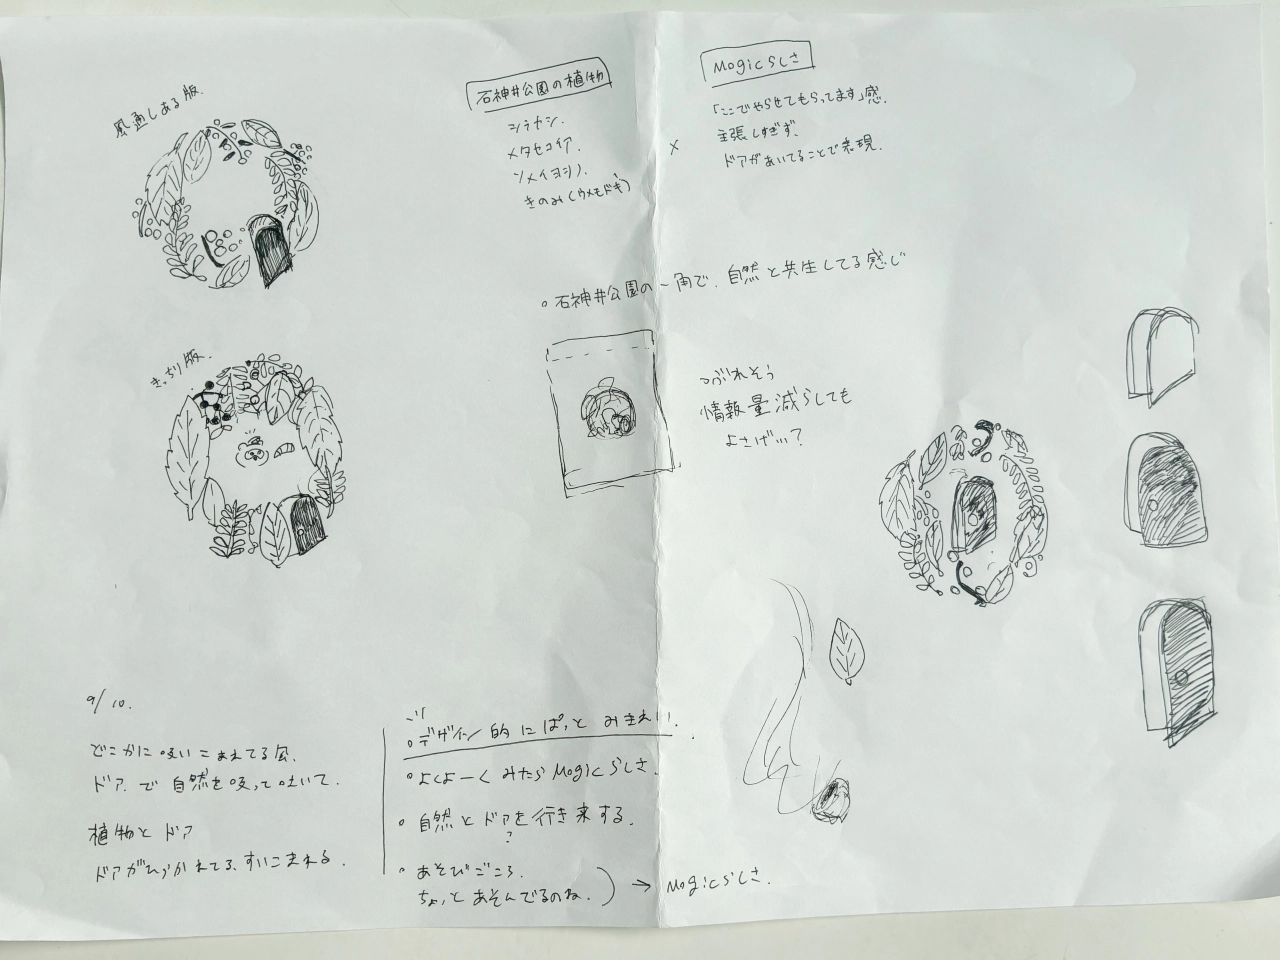 風通しある版.
石神井公園の植物
シラカシ.
メタセコイア.
ソメイヨシノ.
きのみ(ウメモドキ)
×
Mogicらしさ
「ここでやらせてもらってます」感.
主張しすぎず.
ドアがあいてることで表現.
。石神井公園の一角で、自然と共生してる感じ
きっちり版.
つぶれそう
情報量減らしても
よさげ…?
9/10.
どこかに吸いこまれてる風.
ドアで自然を吸って吐いて.
植物とドア
ドアがひらかれてる、すいこまれる.
。デザイン的にぱっとみきれい.
。よくよーくみたらMogicらしさ.
。自然とドアを行き来する.
?
。あそびごころ.
ちょっとあそんでるのね.
→ Mogicらしさ.